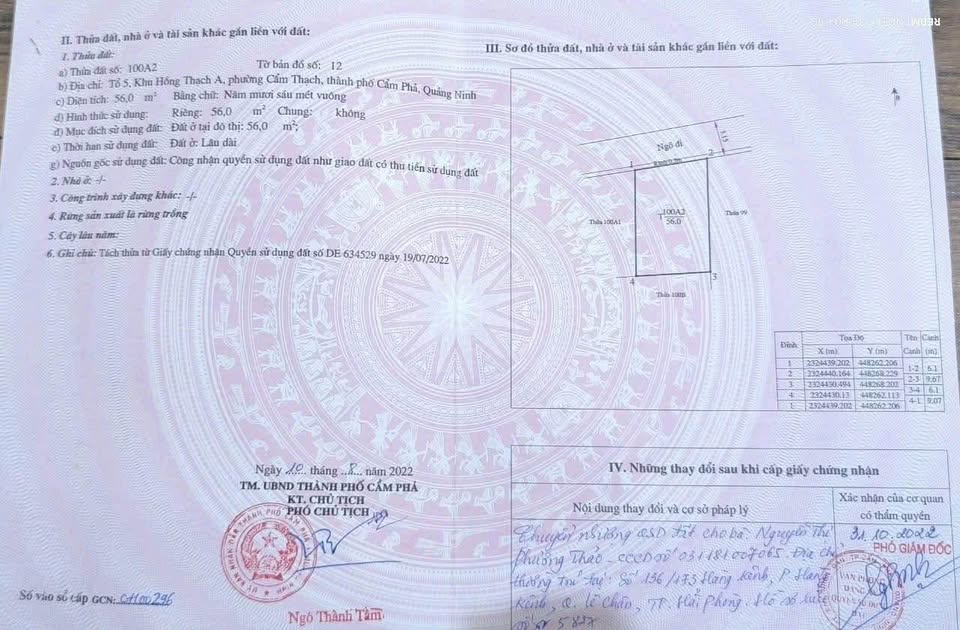 II. Thửa đất, nhà ở và tài sản khác gắn liền với đất:
1. Thửa đất:
a) Thửa đất số: 100A2 Tờ bản đồ số: 12
b) Địa chỉ: Tổ 5, Khu Hồng Thạch A, phường Cẩm Thạch, thành phố Cẩm Phả, Quảng Ninh
c) Diện tích: 56,0 m² Bằng chữ: Năm mươi sáu mét vuông
d) Hình thức sử dụng: Riêng: 56,0 m² Chung: không
đ) Mục đích sử dụng đất: Đất ở tại đô thị: 56,0 m²;
e) Thời hạn sử dụng đất: Đất ở: Lâu dài
g) Nguồn gốc sử dụng đất: Công nhận quyền sử dụng đất như giao đất có thu tiền sử dụng đất
2. Nhà ở: -/-
3. Công trình xây dựng khác: -/-
4. Rừng sản xuất là rừng trồng
5. Cây lâu năm:
6. Ghi chú: Tách thửa từ Giấy chứng nhận Quyền sử dụng đất số DE 634529 ngày 19/07/2022
Ngày 10 tháng 8 năm 2022
TM. UBND THÀNH PHỐ CẨM PHẢ
KT. CHỦ TỊCH
PHÓ CHỦ TỊCH
Ngô Thành Tâm
Số vào sổ cấp GCN: CH00296
III. Sơ đồ thửa đất, nhà ở và tài sản khác gắn liền với đất:
Ngõ đi
3.15
1
2
Thửa 100A1
100A2
56.0
Thửa 99
4
3
Thửa 100B
Đỉnh Tọa Độ Tên Cạnh
X (m) Y (m) Cạnh (m)
1 2324439.202 448262.206
1-2 6.1
2 2324440.164 448268.229
2-3 9.67
3 2324430.494 448268.202
3-4 6.1
4 2324430.13 448262.113
4-1 9.07
1 2324439.202 448262.206
IV. Những thay đổi sau khi cấp giấy chứng nhận
Nội dung thay đổi và cơ sở pháp lý
Xác nhận của cơ quan
có thẩm quyền
Chuyển nhượng QSD đất cho bà: Nguyễn Thị
Phương Thảo, CCCD số 031181007065. Địa chỉ
thường trú tại: Số 136/173 Hàng Kênh, P. Hàng
Kênh, Q. Lê Chân, TP. Hải Phòng. Hồ sơ
số 5887
31.10.2022
PHÓ GIÁM ĐỐC